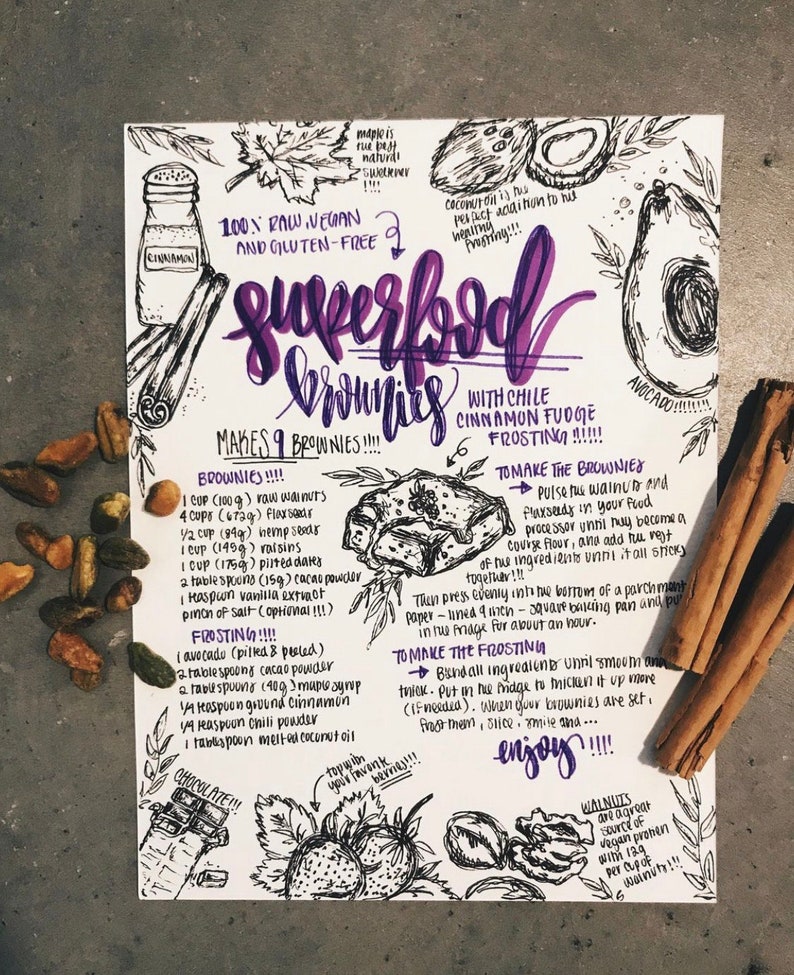 maple is
the best
natural
sweetener
!!!!
coconut oil is the
perfect addition to the
healthy
frosting!!!
100% RAW, VEGAN
AND GLUTEN-FREE
CINNAMON
superfood
brownies
WITH CHILE
CINNAMON FUDGE
FROSTING !!!!!!
AVOCADO!!!!!!!!
MAKES 9 BROWNIES!!!!
BROWNIES!!!!
1 cup (100g) raw walnuts
4 cups (672g) flaxseeds
1/2 cup (84g) hemp seeds
1 cup (145g) raisins
1 cup (175g) pitted dates
2 tablespoons (15g) cacao powder
1 teaspoon vanilla extract
pinch of salt (optional!!!)
FROSTING!!!!
1 avocado (pitted & peeled)
2 tablespoons cacao powder
2 tablespoons (40g) maple syrup
1/4 teaspoon ground cinnamon
1/4 teaspoon chili powder
1 tablespoon melted coconut oil
TO MAKE THE BROWNIES
Pulse the walnuts and
flaxseeds in your food
processor until they become a
course flour, and add the rest
of the ingredients until it all sticks
together!!!
Then press evenly into the bottom of a parchment
paper - lined 9 inch - square baking pan and
in the fridge for about an hour.
TO MAKE THE FROSTING
Blend all ingredients until smooth and
thick. Put in the fridge to thicken it up more
(if needed). When your brownies are set,
frost them, slice, smile and...
enjoy !!!!
CHOCOLATE!!!
top with
your favorite
berries!!!
WALNUTS
are a great
source of
vegan protein
with 12g
per cup of
walnuts!!!